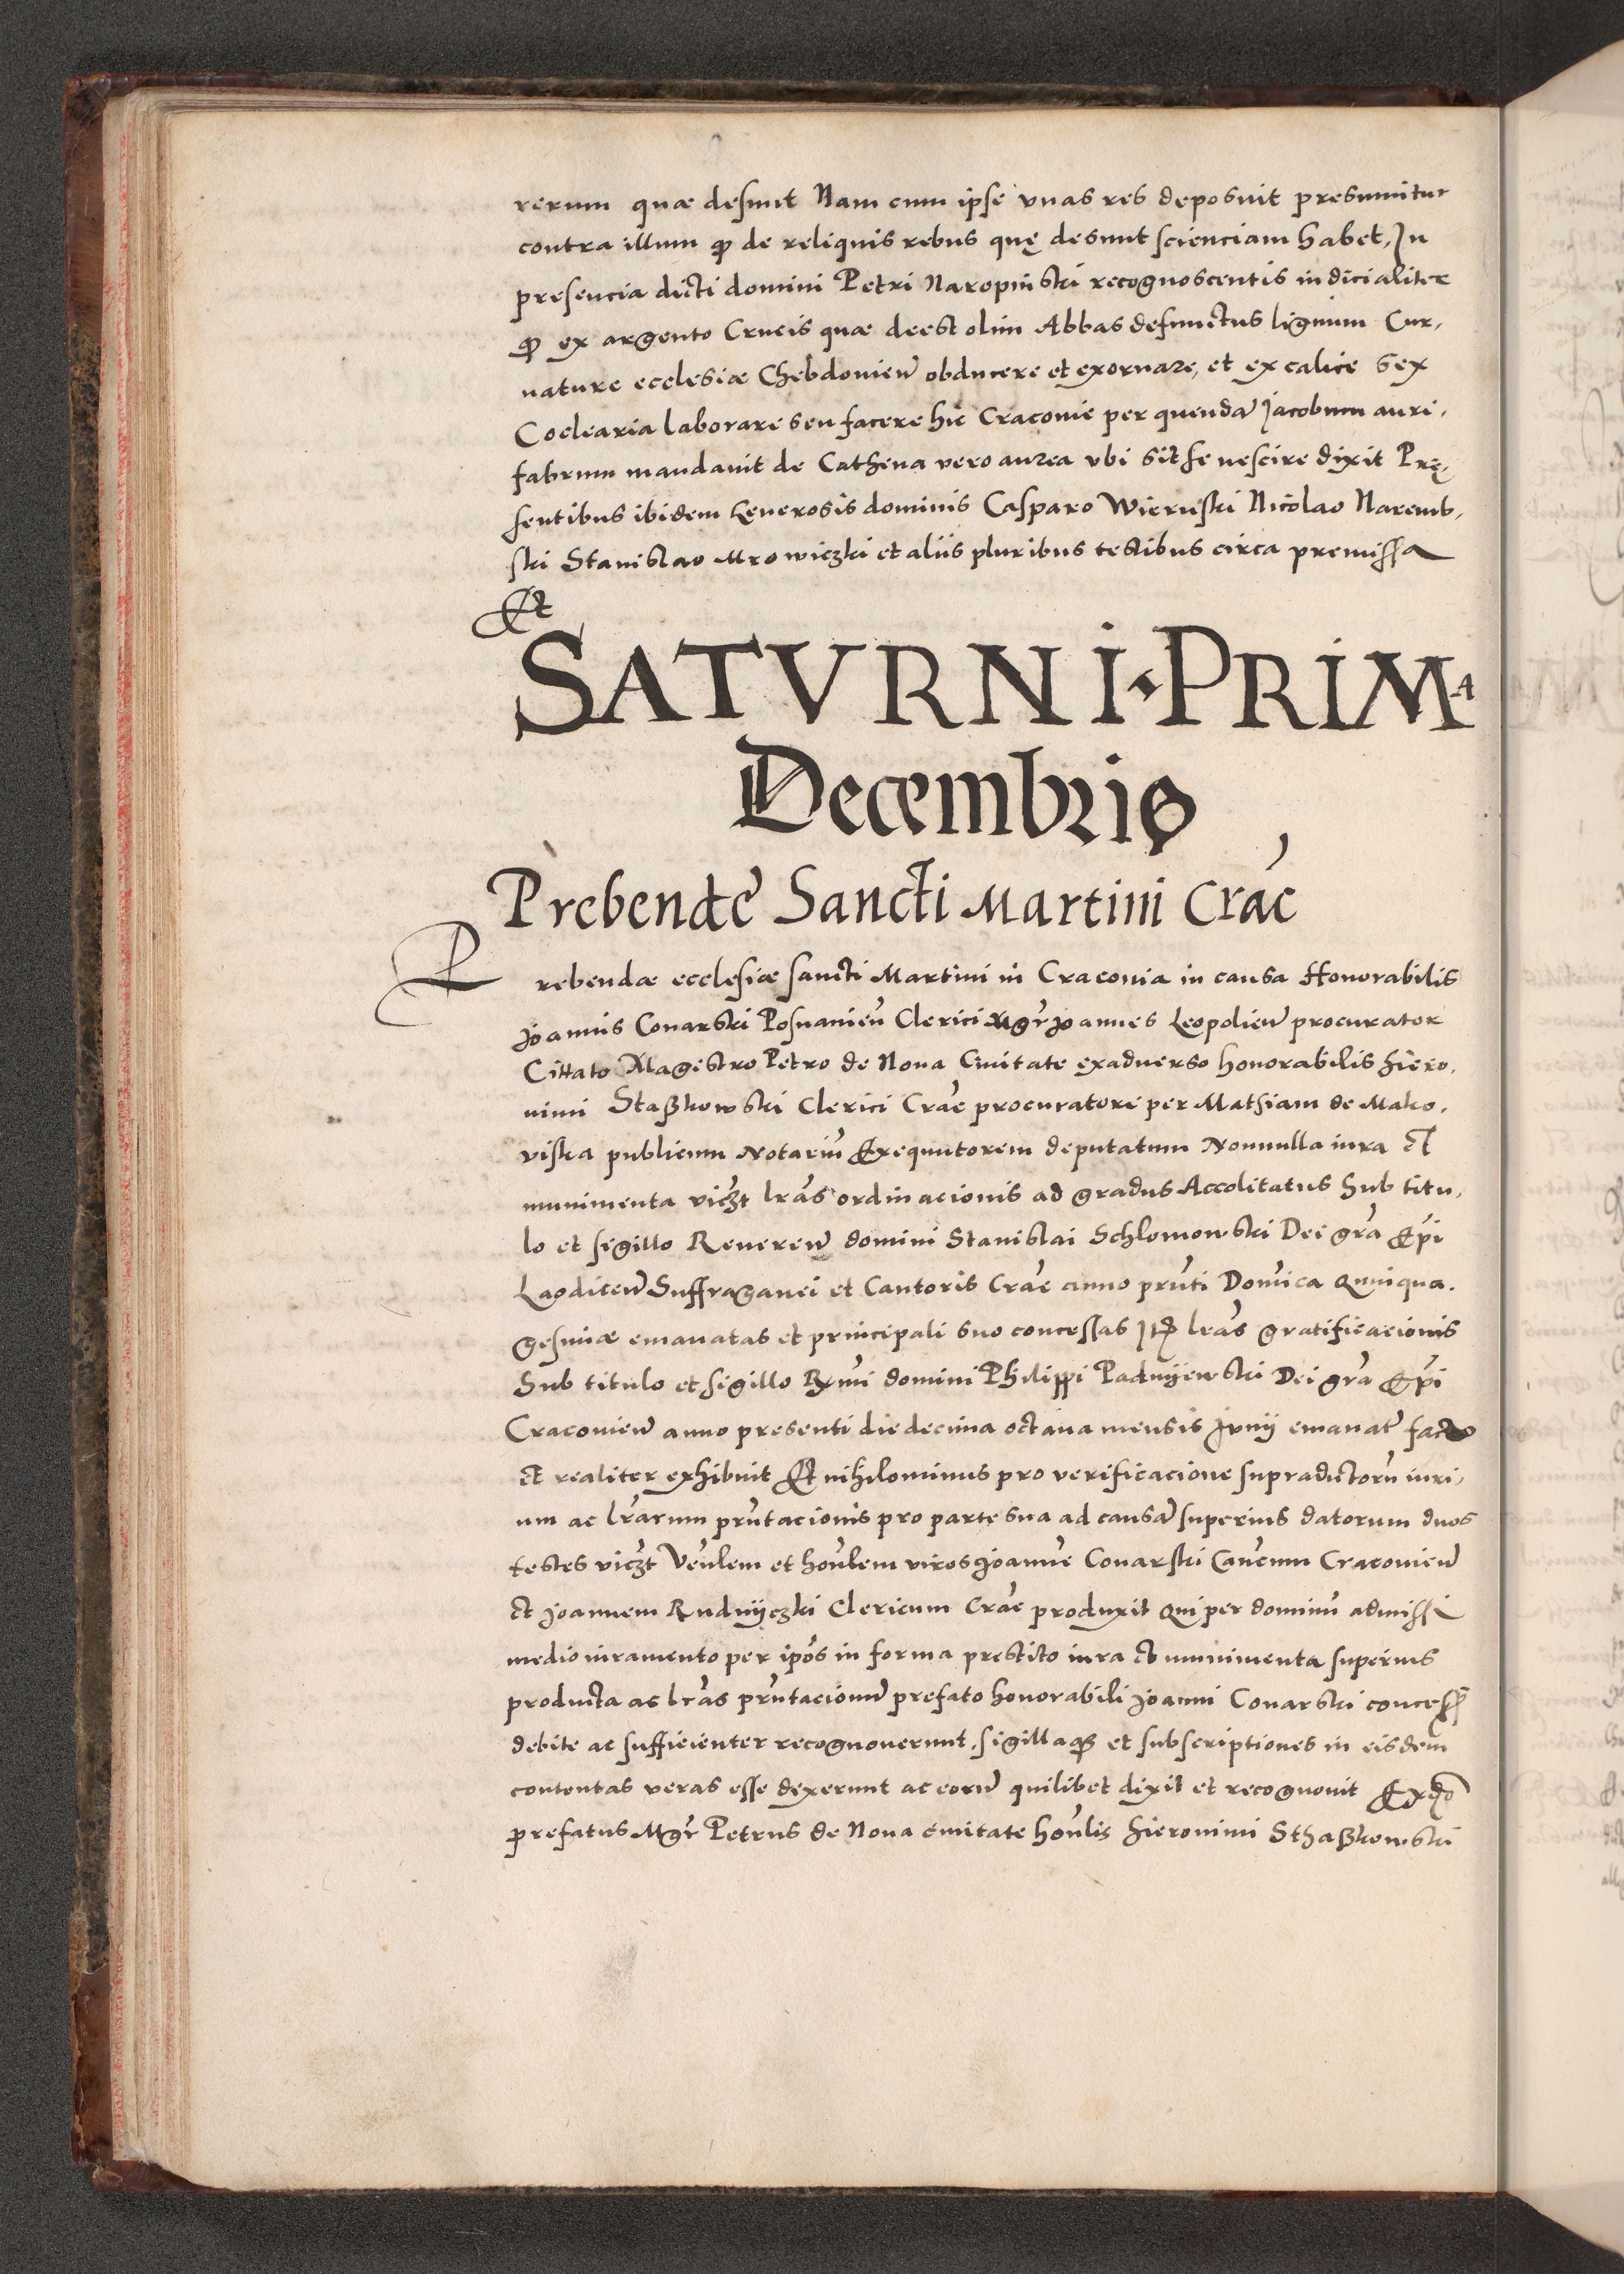 rerum quæ desunt Nam cum ipse vnas res deposuit presumitur
contra illum ꝙ de reliquis rebus quę desunt scienciam habet, In
presencia dicti domini Petri Naropinski recognoscentis indicialiter
ꝙ ex argento Crucis quæ deest olim Abbas defunctus lignum Cur,
uature ecclesiæ Chebdovien̄ obducere et exornare, et ex calice sex
Coclearia laborare seu facere hic Craconie per quendā Jacobum auri,
fabrum mandauit de Cathena vero aurea vbi sit se nescire dixit Prę,
sentibus ibidem Generosis dominis Casparo Wieruski Nicolao Naremb,
ski Stanislao Mrowiczki et aliis pluribus testibus circa premissa
Et
SATVRNI·PRIMA
Decembris
Prebende Sancti Martini Crac̄
Prebendæ ecclesiæ sancti Martini in Craconia in causa Honorabilis
Joannis Conarski Posnanien̄ Clerici Mgr̄ Joannes Leopolien̄ procurator
Cittato Magistro Petro de Noua Ciuitate exaduerso honorabilis Hiero,
nimi Staßkowski Clerici Crac̄ procuratore per Mathiam de Mako,
viska publicum Notariū Exequutorem deputatum Nonnulla iura et
munimenta viczt lr̄as ordinacionis ad gradus Accolitatus Sub titu,
lo et sigillo Reueren̄ domini Stanislai Schlomowski Dei gr̄a Ep̄i
Laodicen̄ Suffraganei et Cantoris Crac̄ anno pr̄nti Domīca Quinqua.
gesimæ emanatas et principali suo concessas Itē lr̄as gratificacionis
Sub titulo et sigillo Rx̄mi domini Philippi Padnijewski Dei gr̄a Ep̄i
Cracouien̄ anno presenti die decima octaua mensis Junij emanat̄ facto
et realiter exhibuit Et nihilominus pro verificacione supradictorū iuri,
um ac lr̄arum pr̄ntacionis pro parte sua ad causā superius datorum duos
testes viczt Ven̄lem et hon̄lem viros Joannē Conarski Can̄cum Cracouien̄
et Joannem Rudnijczki Clericum Crac̄ produxit Qui per dominū admissi
medio iuramento per ip̄os in forma prestito iura et munimenta superius
producta ac lr̄as pr̄ntacionū prefato honorabili Joanni Conarski concess̄
debite ac sufficienter recognouerunt. sigillaqꝫ et subscriptiones in eisdem
contentas veras esse dexerunt ac eorū quilibet dixit et recognouit Exqō
prefatus Mgr̄ Petrus de Noua ciuitate hon̄lis Hieronimi Sthaßkowski